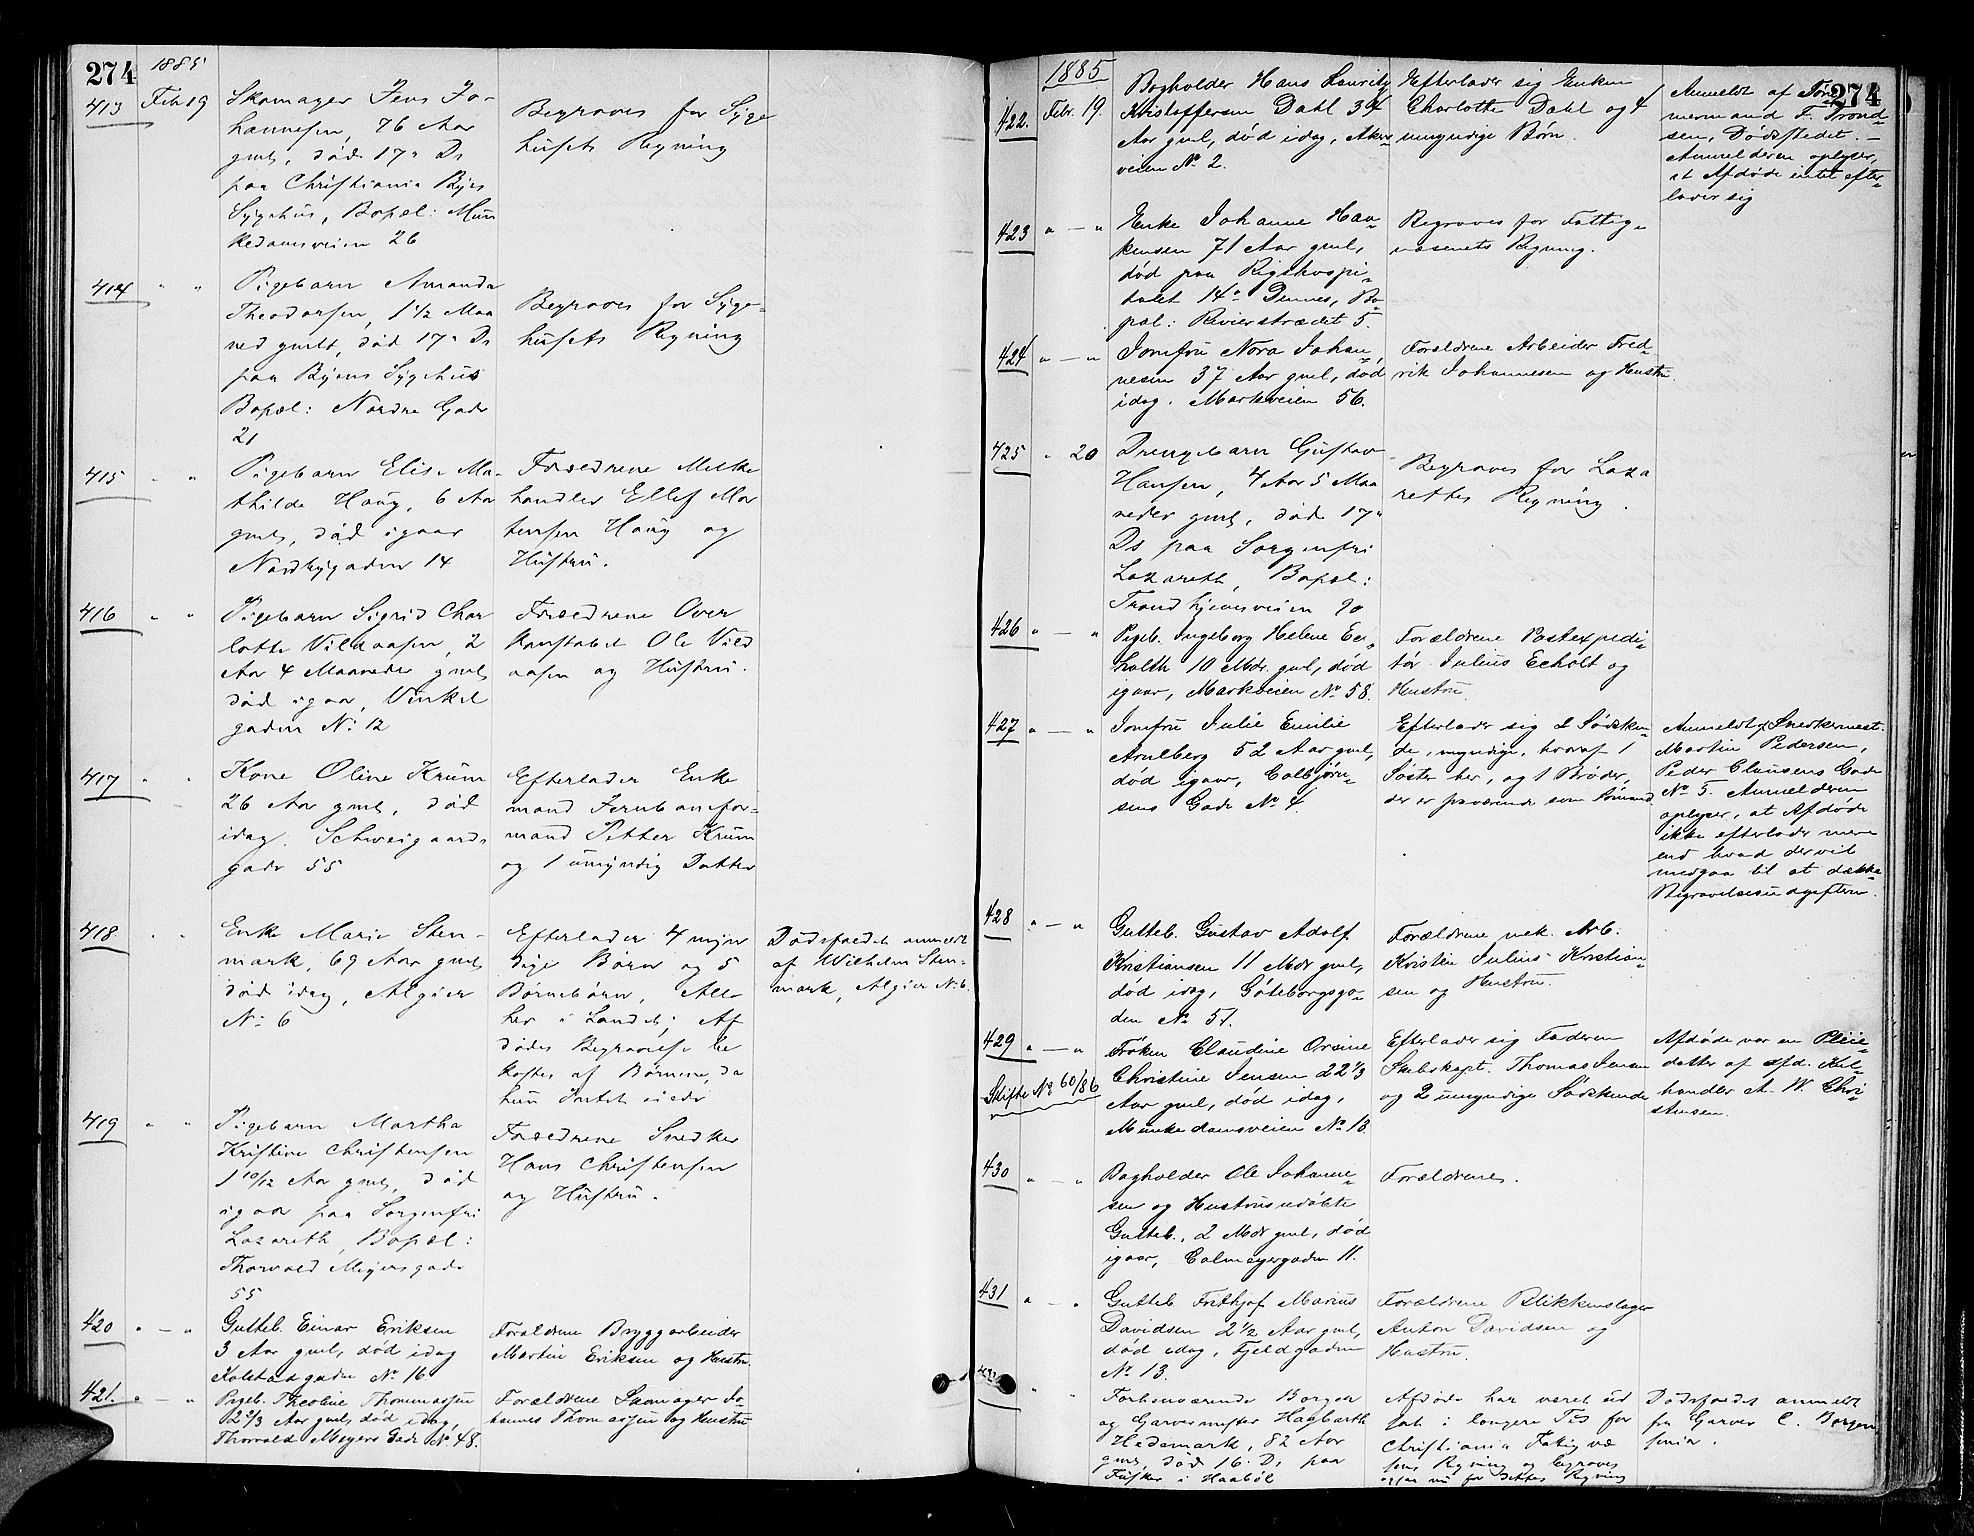 274
1885
413
Febr 19
Skomager Jens Jo-
hannesen, 76 Aar
gml, død 17de Ds
paa Christiania Byes
Sygehus, Bopæl: Mun
kedamsveien 26
Begraves for Syge
husets Regning
414 " "
Pigebarn Amanda
Theodorsen, 1 1/2 Maa
ned gmlt, død 17de Ds
paa Byens Sygehus
Bopæl: Nordre Gade
21
Begraves for Syge-
husets Regning
415 " "
Pigebarn Elise Ma-
thilde Haug, 6 Aar
gml, død igaar
Nordbygaden 14
Forældrene Melke
handler Ellef Mor
tensen Haug og
Hustru.
416 " "
Pigebarn Sigrid Char
lotte Vildaasen, 2
Aar 4 Maaneder gml,
død igaar, Vinkel
gaden No 12
Forældrene Over
Konstabel Ole Vild
aasen og Hustru.
417 " "
Kone Oline Krum
26 Aar gml, død
idag, Schweigaards
gade 55
Efterlader Enke
mand Jernbanefor-
mand Petter Krum
og 1 umyndig Datter
418 " "
Enke Marie Sten-
mark, 69 Aar gml,
død idag, Algier
No 6
Efterlader 4 myn
dige Børn og 5
Børnebørn, Alle
her i Landet; Af
dødes Begravelse be
kostes af Børnene, da
hun Intet eiede
Dødsfaldet anmeldt
af Wilhelm Sten-
mark, Algier No 6.
419 " "
Pigebarn Martha
Kristine Christensen
1 10/12 Aar gml, død
igaar paa Sorgenfri
Lazareth, Bopæl:
Thorvald Meyersgade
55
Forældrene Snedker
Hans Christensen
og Hustru.
420 " — "
Gutteb. Einar Eriksen
3 Aar gml, død idag
Kolstadgaden No 16
Forældrene Bryggarbeider
Martin Eriksen og Hustru
421. " — "
Pigeb. Theoline Thommassen
2 2/3 Aar gml, død idag,
Thorvald Meyers Gade No 48.
Forældrene Jo-
hannes Thomassen og Hustru
274
1885
422.
Febr. 19.
Bogholder Hans Lauritz
Kristoffersen Dahl 34
Aar gml, død idag, Akers
veien No 2.
Efterlader sig Enken
Charlotte Dahl og 4
umyndige Børn.
Anmeldt af Tøm
mermand F. Trond-
sen, Dødsstedet. —
Anmelderen oplyser,
at Afdøde intet efter-
lader sig
423 " — "
Enke Johanne Haa-
kensen 71 Aar gml,
død paa Rigshospi-
talet 14de Dennes, Bo-
pæl: Revierstrædet 5.
Begraves for Fattig-
væsenets Regning.
424 " — "
Jomfru Nora Johan-
nesen 37 Aar gml, død
idag. Markveien 56.
Forældrene Arbeider Fred-
rik Johannesen og Hustru.
425 " 20
Drengebarn Gustav
Hansen, 4 Aar 5 Maa
neder gml, død 17de
Ds paa Sorgenfri
Lazareth, Bopæl:
Trondhjemsveien 90
Begraves for Laza
rettes Regning.
426 " — "
Pigeb. Ingeborg Helene Ec-
holth 10 Mdr. gml, død
igaar, Markveien No 58.
Forældrene Postexpedi-
tør Julius Echolt og
Hustru.
427 " — "
Jomfru Julie Emilie
Arnlberg 52 Aar gml,
død igaar, Colbjørn-
sens Gade No 4.
Efterlader sig 2 Sødsken-
de, myndige, hvoraf 1
Søster her, og 1 Broder,
der er fraværende som Sømand
Anmeldt af Snedkermest.
Martin Pedersen,
Peder Clausens Gade
No 5. Anmelderen
oplyser, at Afdøde
ikke efterlader mere
end hvad der vil
medgaa til at dække
Begravelsesudgiften.
428 " — "
Gutteb. Gustav Adolf
Kristiansen 11 Mdr gml,
død idag, Göteborgsga-
den No 51.
Forældrene nek. Arb.
Kristen Julius Kristian-
sen og Hustru.
429 " — "
Skifte No 60/86
Frøken Claudine Orsine
Christine Jensen 22 1/3
Aar gml, død idag,
Munkedamsveien No 13.
Efterlader sig Faderen
Skibskapt. Thomas Jensen
og 2 umyndige Sødskende
Afdøde var en Pleie-
datter af afd. Kul-
handler A. W. Chri-
stensen.
430 " — "
Bogholder Ole Johanne-
sen og Hustrus udøbte
Gutteb., 2 Mdr gml, død
igaar, Calmeyergaden 11.
Forældrenes.
431 " — "
Gutteb. Frithjof Marius
Davidsen 2 1/2 Aar gml,
død idag, Fjeldgaden
No 13.
Forældrene Blikkenslager
Anton Davidsen og
Hustru.
" "
Forhenværende Borger
og Garvermester Hagbarth
Hedemark, 82 Aar
gml, død 16. Ds paa
i Haabøl
Afdøde har været ud
sat i længere Tid for
Christiania Fattigvæ
sens Regning og begraves
ogsaa nu for dettes Regning
Dødsfaldet anmeldt
fra Garver C. Borgen
senior.